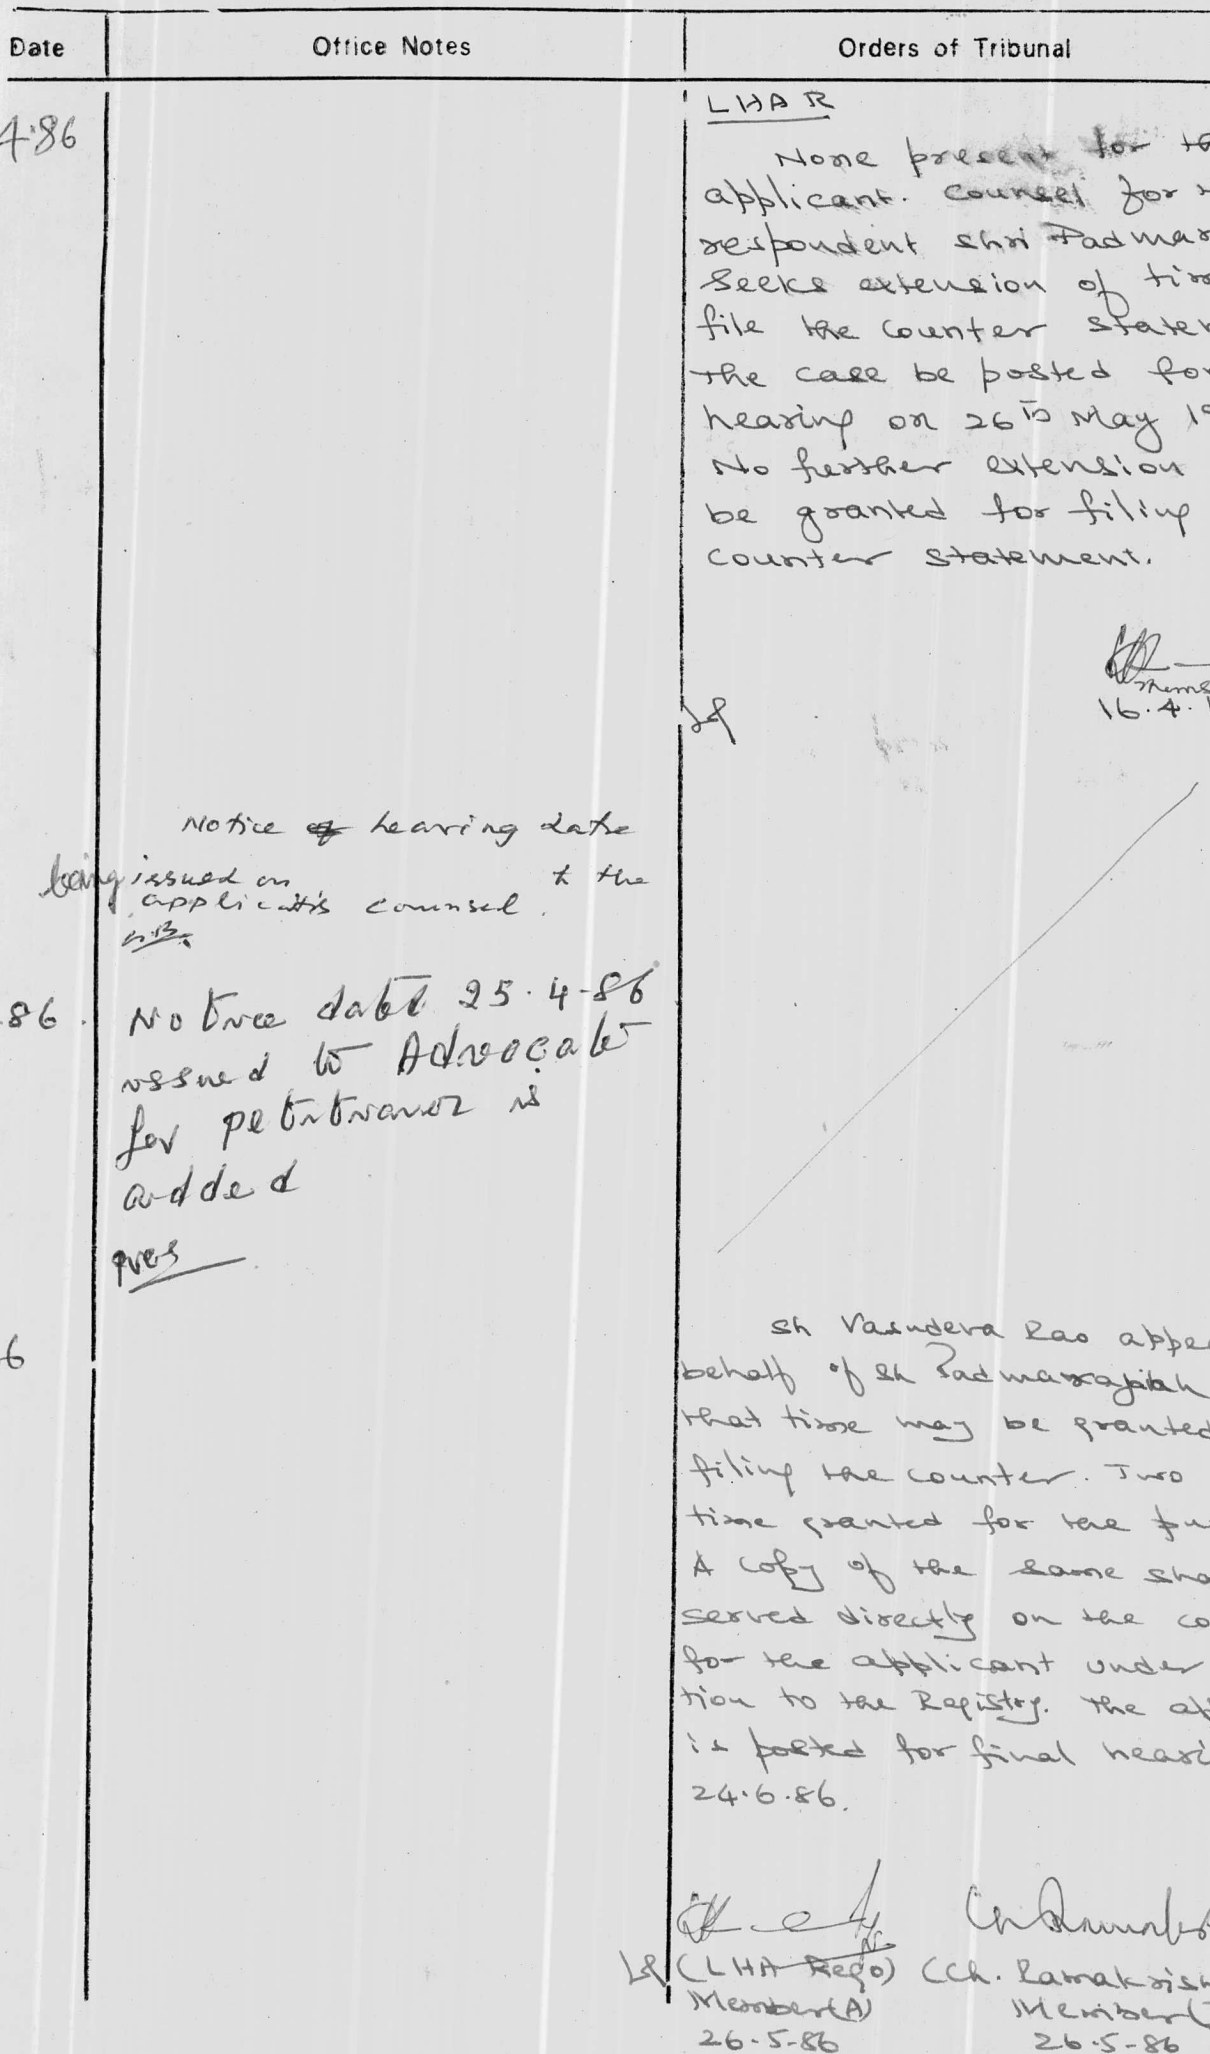 Date Office Notes Orders of Tribunal
4.86
LHAR
None present for
applicant. Counsel for
respondent shri Padmar
seeks extension of tim
file the counter statem
The case be posted for
hearing on 26th May 19
No further extension
be granted for filing
counter statement.
16.4.
Notice of hearing date
being issued on to the
applicant's counsel.
86. Notice dated 25.4-86
issued to Advocate
for petitioner is
added
6
Sh Vasudeva Rao appea
behalf of Sh Padmarajaiah
that time may be granted
filing the counter. Two
time granted for the pu
A copy of the same sha
served directly on the co
for the applicant under
tion to the Registry. The ap
is posted for final heari
24.6.86.
(LHA Rego) (Ch. Ramakrish
Member(A) Member(J
26-5-86 26-5-86